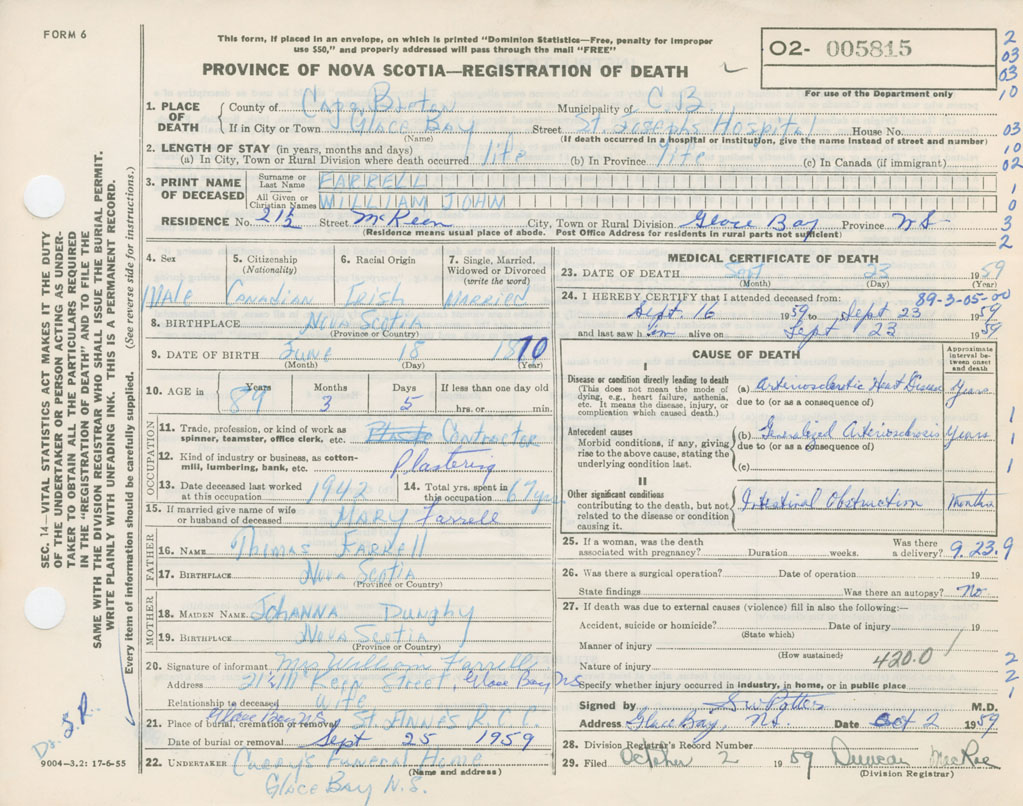 FORM 6
This form, if placed in an envelope, on which is printed "Dominion Statistics—Free, penalty for improper
use $50," and properly addressed will pass through the mail "FREE"
PROVINCE OF NOVA SCOTIA—REGISTRATION OF DEATH
O2- 005815
For use of the Department only
2
03
03
10
03
10
02
1
0
3
2
1. PLACE OF DEATH
County of Cape Breton Municipality of C B
If in City or Town Glace Bay Street St. Josephs Hospital House No.
(Name) (If death occurred in a hospital or institution, give the name instead of street and number)
2. LENGTH OF STAY (in years, months and days)
(a) In City, Town or Rural Division where death occurred life (b) In Province life (c) In Canada (if immigrant)
3. PRINT NAME OF DECEASED
Surname or Last Name FARRELL
All Given or Christian Names WILLIAM JOHN
RESIDENCE No. 21½ Street McKeen City, Town or Rural Division Glace Bay Province NS
(Residence means usual place of abode. Post Office Address for residents in rural parts not sufficient)
4. Sex
Male
5. Citizenship
(Nationality)
Canadian
6. Racial Origin
Irish
7. Single, Married, Widowed or Divorced
(write the word)
Married
8. BIRTHPLACE Nova Scotia
(Province or Country)
9. DATE OF BIRTH June 18 1870
(Month) (Day) (Year)
10. AGE in
Years Months Days If less than one day old
89 3 5 hrs. or min.
OCCUPATION
11. Trade, profession, or kind of work as
spinner, teamster, office clerk, etc. Contractor
12. Kind of industry or business, as cotton-
mill, lumbering, bank, etc. Plastering
13. Date deceased last worked
at this occupation 1942
14. Total yrs. spent in
this occupation 67 yrs
15. If married give name of wife
or husband of deceased MARY Farrell
FATHER
16. NAME Thomas Farrell
17. BIRTHPLACE Nova Scotia
(Province or Country)
MOTHER
18. MAIDEN NAME Johanna
19. BIRTHPLACE Nova Scotia
(Province or Country)
20. Signature of informant Mrs William Farrell
Address 21½ McKeen Street, Glace Bay NS
Relationship to deceased wife
Glace Bay N.S.
21. Place of burial, cremation or removal St Anne's R.C.C.
Date of burial or removal Sept 25 1959
22. UNDERTAKER Curry's Funeral Home
(Name and address)
Glace Bay N.S.
MEDICAL CERTIFICATE OF DEATH
23. DATE OF DEATH Sept 23 1959
(Month) (Day) (Year)
24. I HEREBY CERTIFY that I attended deceased from: 89-3-05-00
Sept. 16 1959 to Sept 23 1959
and last saw him alive on Sept 23 1959
CAUSE OF DEATH
Approximate interval between onset and death
I
Disease or condition directly leading to death
(This does not mean the mode of
dying, e.g., heart failure, asthenia,
etc. It means the disease, injury, or
complication which caused death.)
(a) Arteriosclerotic Heart Disease Years
due to (or as a consequence of)
Antecedent causes
Morbid conditions, if any, giving
rise to the above cause, stating the
underlying condition last.
(b) Generalized Arteriosclerosis Years
due to (or as a consequence of)
(c)
1
1
1
II
Other significant conditions
contributing to the death, but not
related to the disease or condition
causing it.
Intestinal Obstruction Months
25. If a woman, was the death
associated with pregnancy? Duration weeks. Was there a delivery? 9.23.9
26. Was there a surgical operation? Date of operation 19
State findings Was there an autopsy? No
27. If death was due to external causes (violence) fill in also the following:—
Accident, suicide or homicide? Date of injury 19
(State which)
Manner of injury
(How sustained)
Nature of injury 420.0
Specify whether injury occurred in industry, in home, or in public place
2
2
1
Signed by S.W. Potter M.D.
Address Glace Bay, N.S. Date Oct 2 1959
28. Division Registrar's Record Number
29. Filed October 2 1959 Duncan McRae
(Division Registrar)
SEC. 14—VITAL STATISTICS ACT MAKES IT THE DUTY
OF THE UNDERTAKER OR PERSON ACTING AS UNDER-
TAKER TO OBTAIN ALL THE PARTICULARS REQUIRED
IN THE "REGISTRATION OF DEATH" AND TO FILE THE
SAME WITH THE DIVISION REGISTRAR WHO SHALL ISSUE THE BURIAL PERMIT.
WRITE PLAINLY WITH UNFADING INK. THIS IS A PERMANENT RECORD.
Every item of information should be carefully supplied. (See reverse side for instructions.)
9004—3.2: 17-6-55